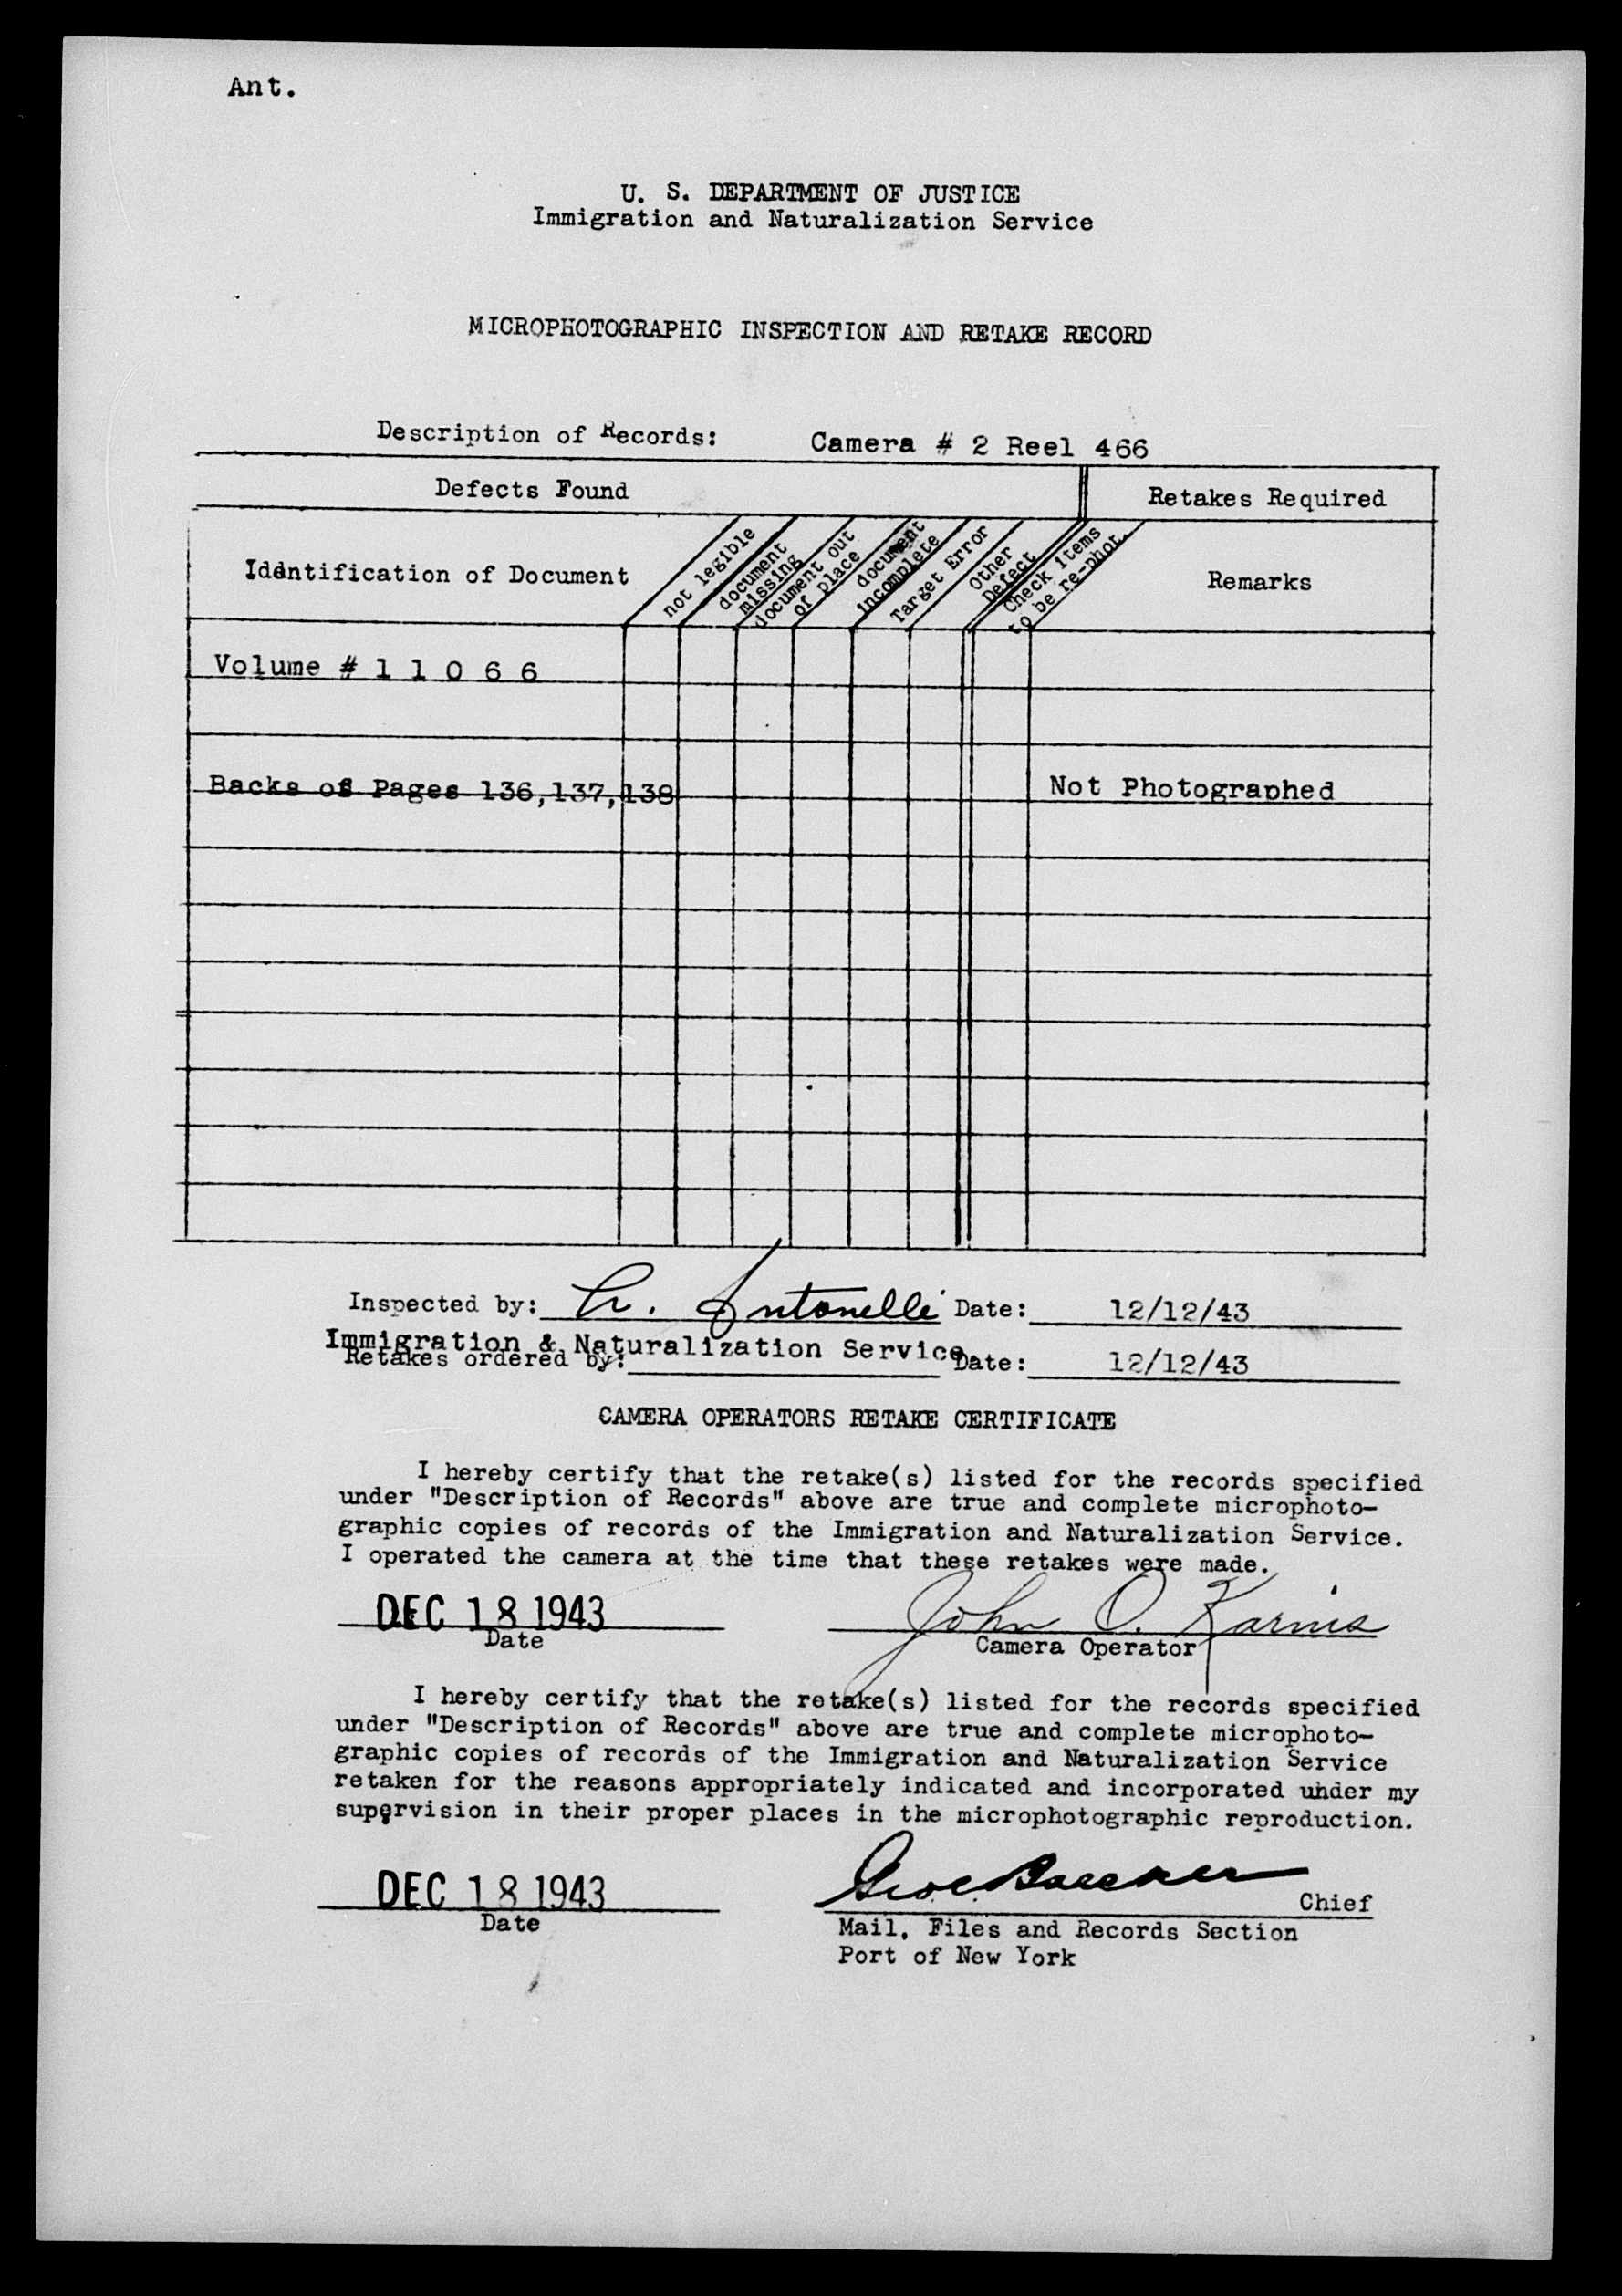 Ant.
U. S. DEPARTMENT OF JUSTICE
Immigration and Naturalization Service
MICROPHOTOGRAPHIC INSPECTION AND RETAKE RECORD
Description of Records: Camera # 2 Reel 466
Defects Found
Retakes Required
Iddntification of Document
not legible
document missing
document out of place
document incomplete
Target Error
Other Defect
Check items to be re-phot.
Remarks
Volume # 1 1 0 6 6
Backs of Pages 136,137,138 Not Photographed
Inspected by: Antonelli Date: 12/12/43
Immigration & Naturalization Service.
Retakes ordered by: Date: 12/12/43
CAMERA OPERATORS RETAKE CERTIFICATE
I hereby certify that the retake(s) listed for the records specified
under "Description of Records" above are true and complete microphoto-
graphic copies of records of the Immigration and Naturalization Service.
I operated the camera at the time that these retakes were made.
DEC 18 1943 John O. Karnis
Date Camera Operator
I hereby certify that the retake(s) listed for the records specified
under "Description of Records" above are true and complete microphoto-
graphic copies of records of the Immigration and Naturalization Service
retaken for the reasons appropriately indicated and incorporated under my
supervision in their proper places in the microphotographic reproduction.
DEC 18 1943 Chief
Date Mail, Files and Records Section
Port of New York